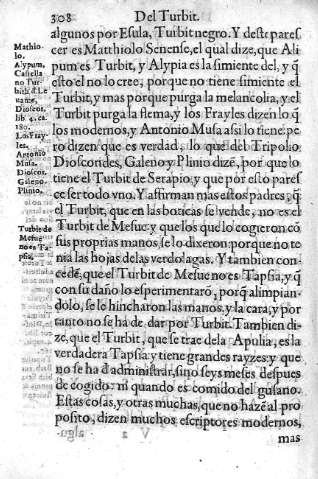 308 Del Turbit.
algunos por Esula, Tuibit negro. Y deste pares
cer es Matthiolo Senense, el qual dize, que Ali
pum es Turbit, y Alypia es la simiente del, y q̃
esto el no lo cree, porque no tiene simiente el
Turbit, y mas porque purga la melancolia, y el
Turbit purga la flema, y los Frayles dizen lo q̃
los modernos, y Antonio Musa assi lo tiene, pe
ro dizen que es verdad, lo que del Tripolio
Dioscorides, Galeno y Plinio dizẽ, por que lo
tiene el Turbit de Serapio, y que por esto pares
ce ser todo vno. Y affirman mas estos padres, q̃
el Turbit, que en las boticas se vende, no es el
Turbit de Mesue: y que los que lo cogieron cõ
sus proprias manos, se lo dixeron: porque no te
nia las hojas de las verdolagas. Y tambien con
cedẽ, que el Turbit de Mesue no es Tapsia, y q̃
con su daño lo esperimentarõ, porq̃ alimpian
dolo, se le hincharon las manos, y la cara, y por
tanto no se ha de dar por Turbit. Tambien di
ze, que el Turbit, que se trae de la Apulia, es la
verdadera Tapsia y tiene grandes rayzes: y que
no se ha d'administrar, sino seys meses despues
de cogido: ni quando es comido del gusano.
Estas cosas, y otras muchas, que no hazẽ al pro
posito, dizen muchos escriptores modernos,
mas
Mathio
lo.
Alypum.
Castella
no Tur-
bith d Le
uante,
Dioscor.
lib. 4. ca.
180.
Los Fray-
les.
Antonio
Musa.
Dioscor.
Galeno.
Plinio.
Turbit de
Mesue
no es Ta
psia.